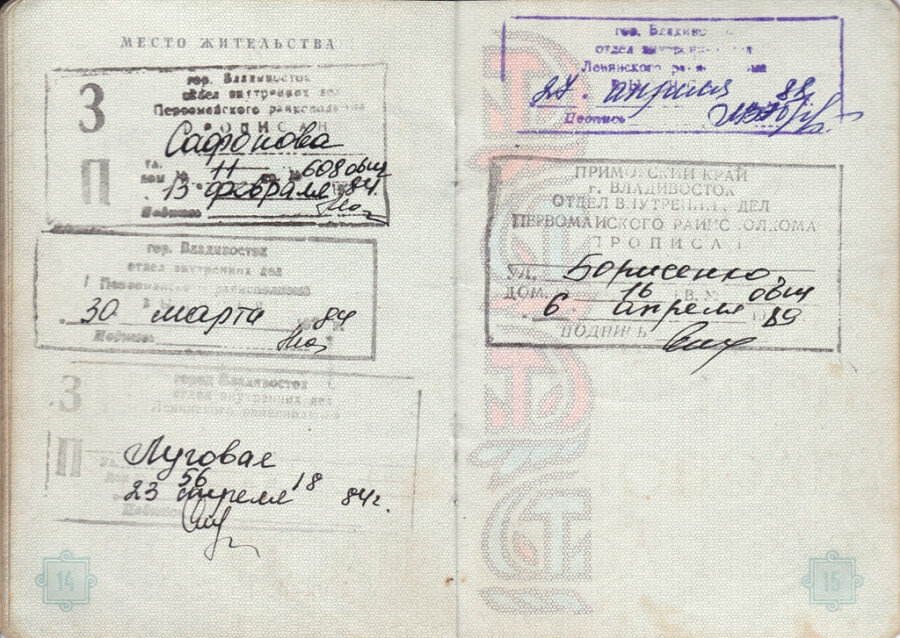 МЕСТО ЖИТЕЛЬСТВА
З
П
гор. Владивосток
отдел внутренних дел
Первомайского райисполкома
ПРОПИСАН
Сафонова
ул.
дом № 11 608 общ
13 февраля 84.
Подпись
гор. Владивосток
отдел внутренних дел
Первомайского райисполкома
30 марта 84
Подпись
З
П
город Владивосток
отдел внутренних дел
Ленинского райисполкома
Луговая
56 18
23 апреля 84г.
14
гор. Владивосток
отдел внутренних дел
Ленинского
27. апреля 88
Подпись
ПРИМОРСКИЙ КРАЙ
г. ВЛАДИВОСТОК
ОТДЕЛ ВНУТРЕННИХ ДЕЛ
ПЕРВОМАЙСКОГО РАЙИСПОЛКОМА
ПРОПИСАН
УЛ. Борисенко,
ДОМ. 16 КВ. общ
6 апреля 1989
ПОДПИСЬ
15